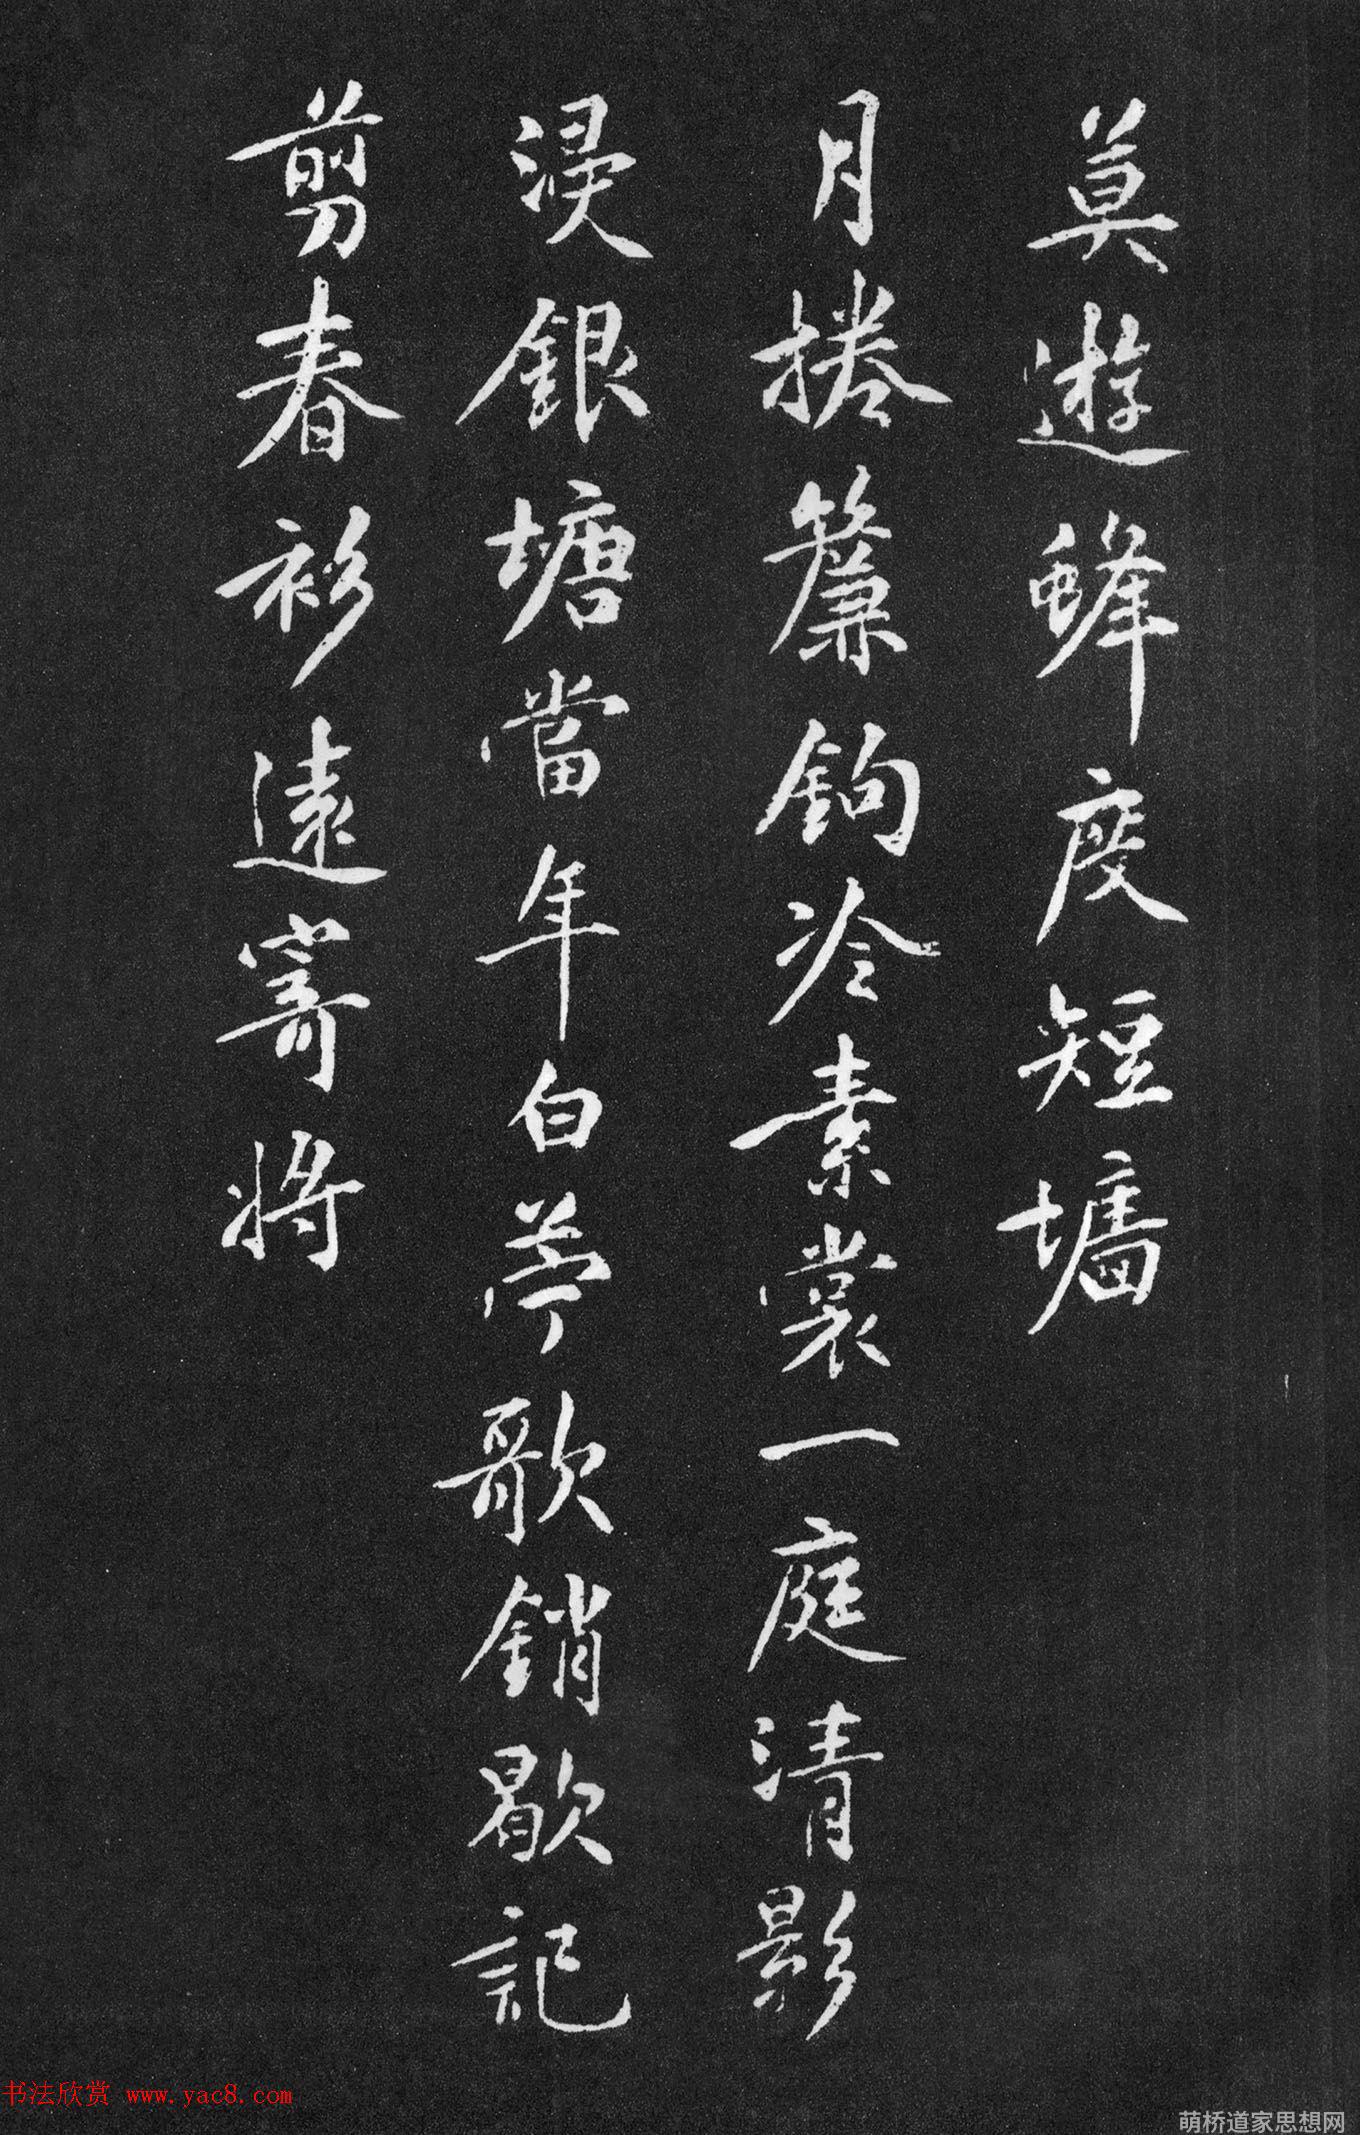 莫遊蜂度短墻
月捲簾鉤冷素裳一庭清影
浸銀塘當年白苧歌銷歇記
剪春衫遠寄將
书法欣赏 www.yac8.com
萌桥道家思想网